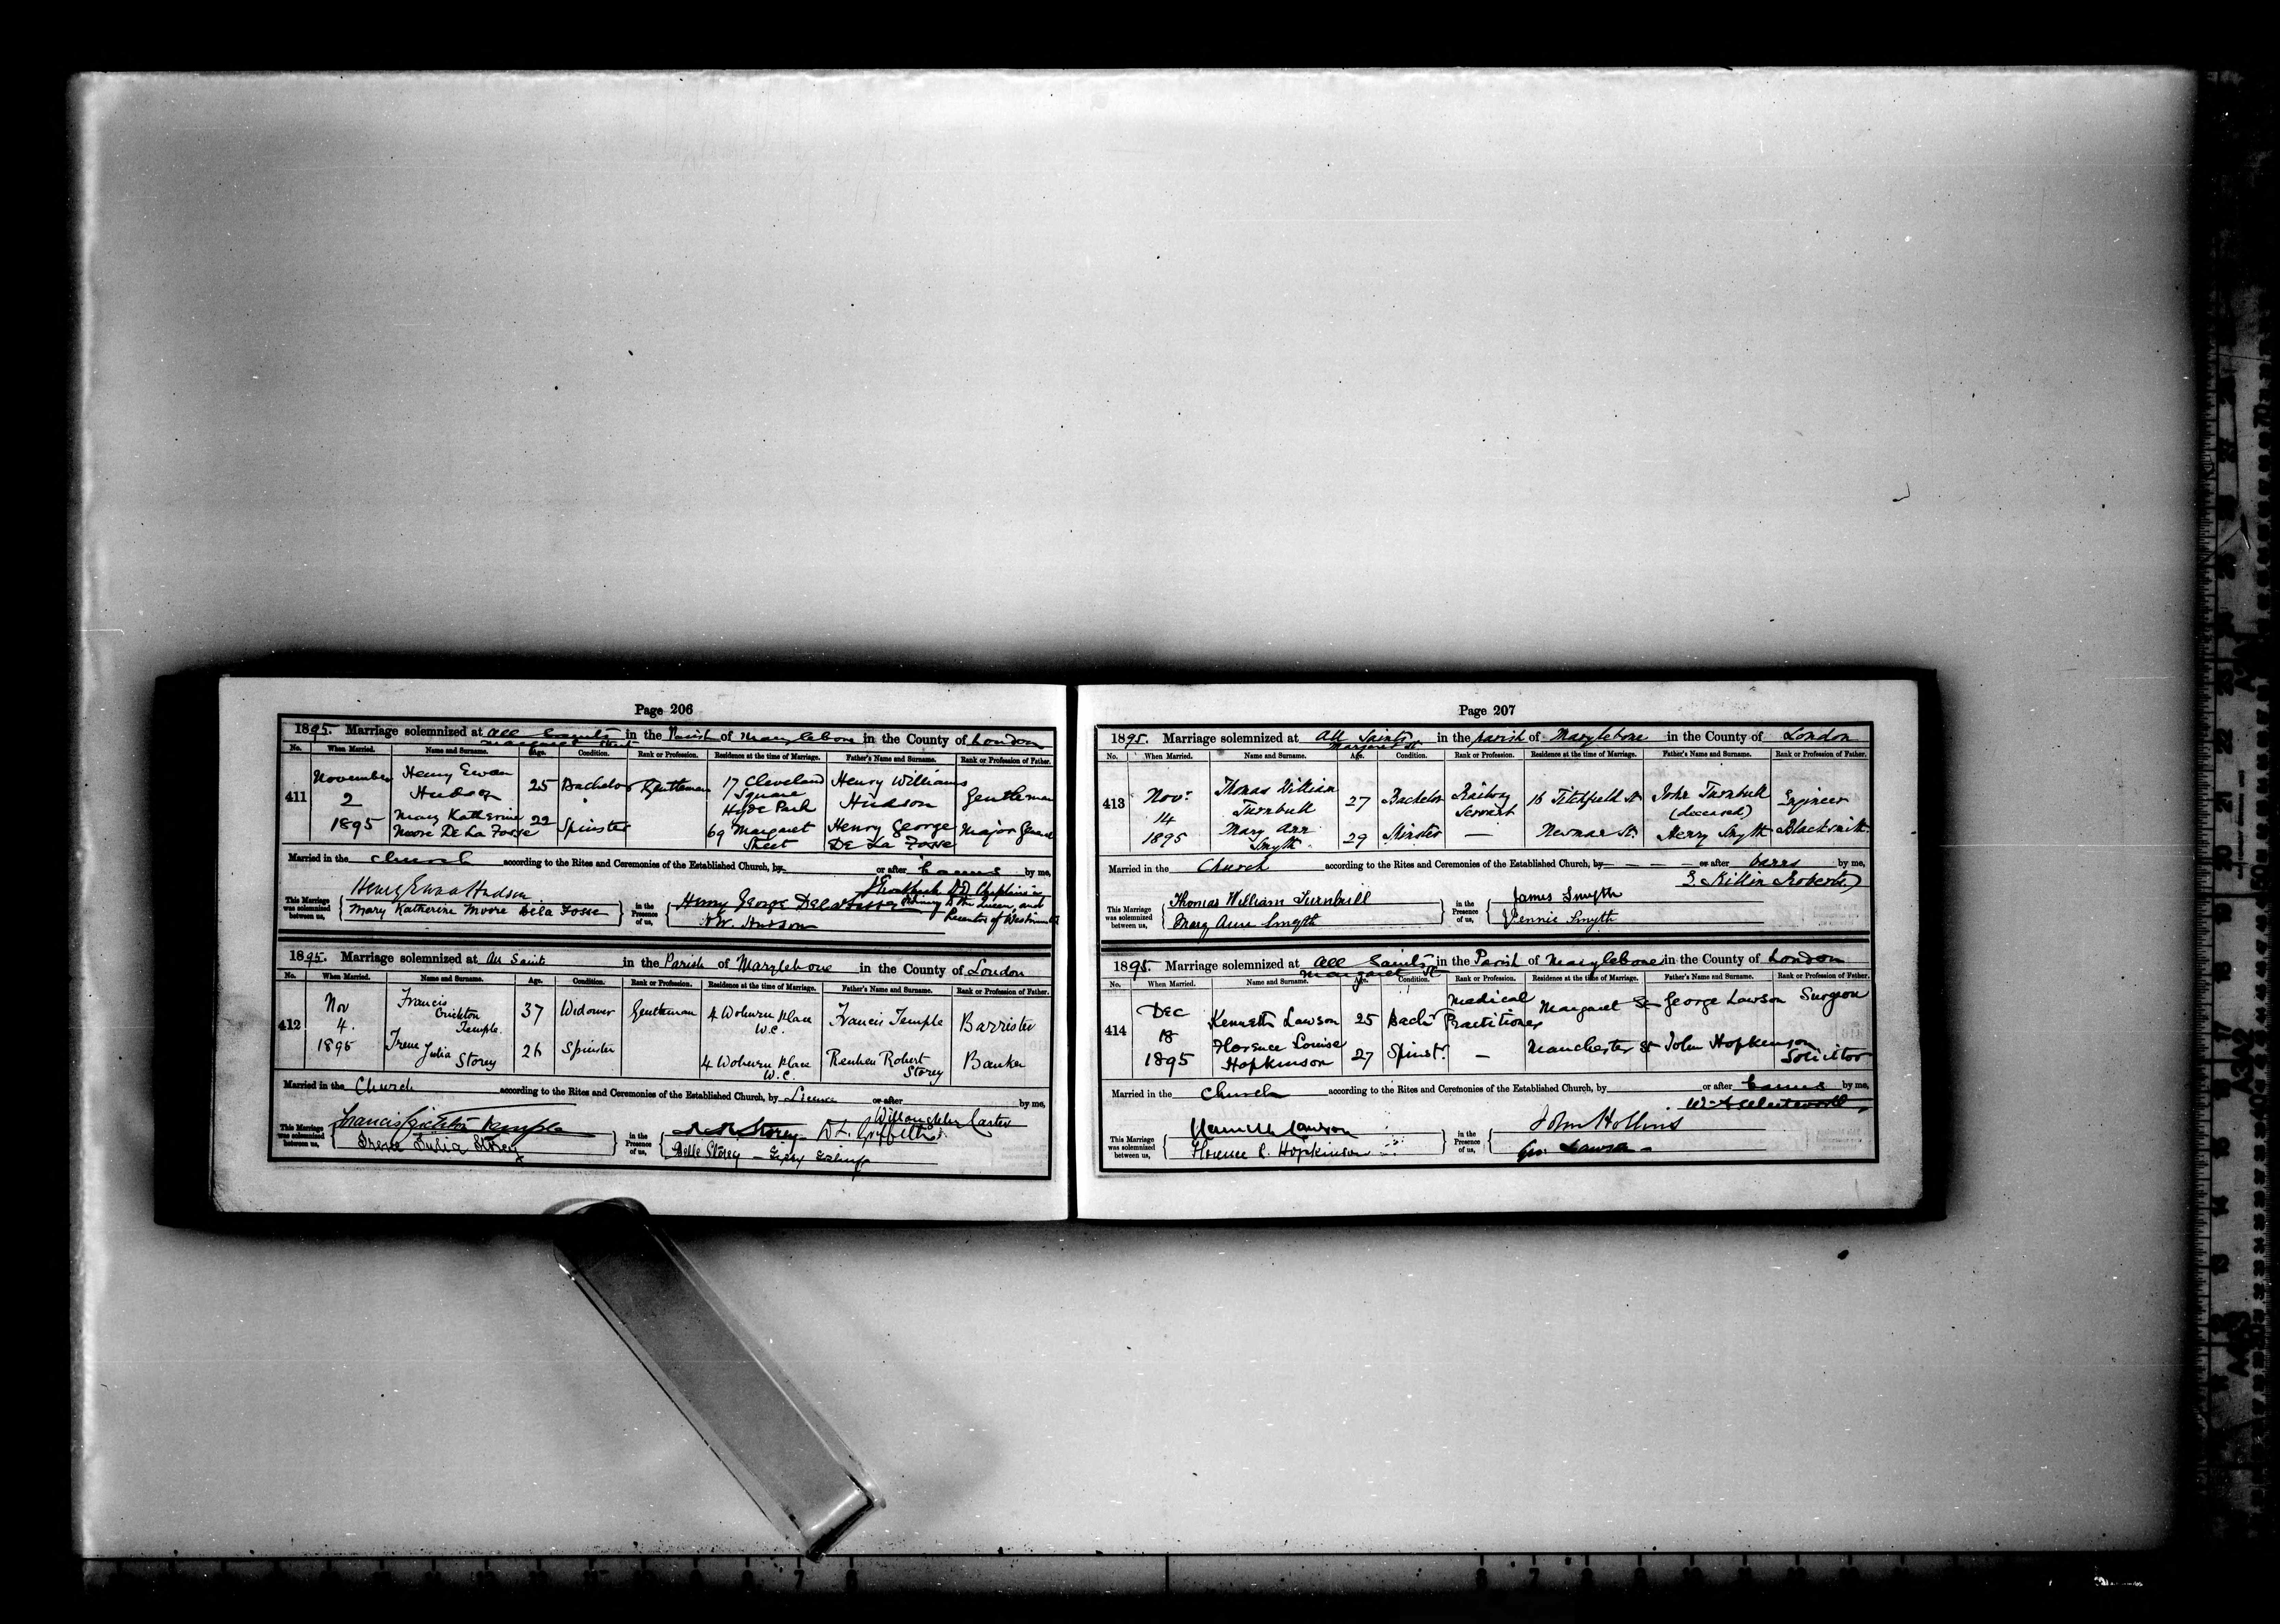 Page 206
1895. Marriage solemnized at All Saints in the Parish of Marylebone in the County of London
Margaret Street
No. When Married. Name and Surname. Age. Condition. Rank or Profession. Residence at the time of Marriage. Father's Name and Surname. Rank or Profession of Father.
411 November 2 1895 Henry Ewan Hudson 25 Bachelor Gentleman 17 Cleveland Square Hyde Park Henry Williams Hudson Gentleman
Mary Katherine Moore De La Fosse 22 Spinster 69 Margaret Street Henry George De La Fosse Major General
Married in the Church according to the Rites and Ceremonies of the Established Church, by or after Banns by me,
This Marriage was solemnized between us, Henry Ewan Hudson in the Presence of us, Henry George De La Fosse
Mary Katherine Moore De la Fosse H. W. Hudson
1895. Marriage solemnized at All Saints in the Parish of Marylebone in the County of London
No. When Married. Name and Surname. Age. Condition. Rank or Profession. Residence at the time of Marriage. Father's Name and Surname. Rank or Profession of Father.
412 Nov 4. 1895 Francis Crichton Temple. 37 Widower Gentleman 4 Woburn Place W.C. Francis Temple Barrister
Irene Julia Storey 26 Spinster 4 Woburn Place W.C. Reuben Robert Storey Banker
Married in the Church according to the Rites and Ceremonies of the Established Church, by Licence or after by me,
Willoughby Carter
This Marriage was solemnized between us, Francis Crichton Temple in the Presence of us, R. R. Storey D. L. Griffith
Irene Julia Storey Belle Storey
Page 207
1895. Marriage solemnized at All Saints in the parish of Marylebone in the County of London
Margaret St
No. When Married. Name and Surname. Age. Condition. Rank or Profession. Residence at the time of Marriage. Father's Name and Surname. Rank or Profession of Father.
413 Nov: 14 1895 Thomas William Turnbull 27 Bachelor Railway Servant 16 Titchfield St John Turnbull (deceased) Engineer
Mary Ann Smyth. 29 Spinster — Newman St. Henry Smyth Blacksmith
Married in the Church according to the Rites and Ceremonies of the Established Church, by — — — or after banns by me,
G Killin Roberts
This Marriage was solemnized between us, Thomas William Turnbull in the Presence of us, James Smyth
Mary Ann Smyth Jennie Smyth
1895. Marriage solemnized at All Saints in the Parish of Marylebone in the County of London
Margaret St
No. When Married. Name and Surname. Age. Condition. Rank or Profession. Residence at the time of Marriage. Father's Name and Surname. Rank or Profession of Father.
414 Dec 18 1895 Kenneth Lawson 25 Bachr Medical Practitioner Margaret St George Lawson Surgeon
Florence Louise Hopkinson 27 Spinstr. — Manchester St John Hopkinson Solicitor
Married in the Church according to the Rites and Ceremonies of the Established Church, by or after Banns by me,
This Marriage was solemnized between us, Kenneth Lawson in the Presence of us, John Hollins
Florence L. Hopkinson Geo. Lawson